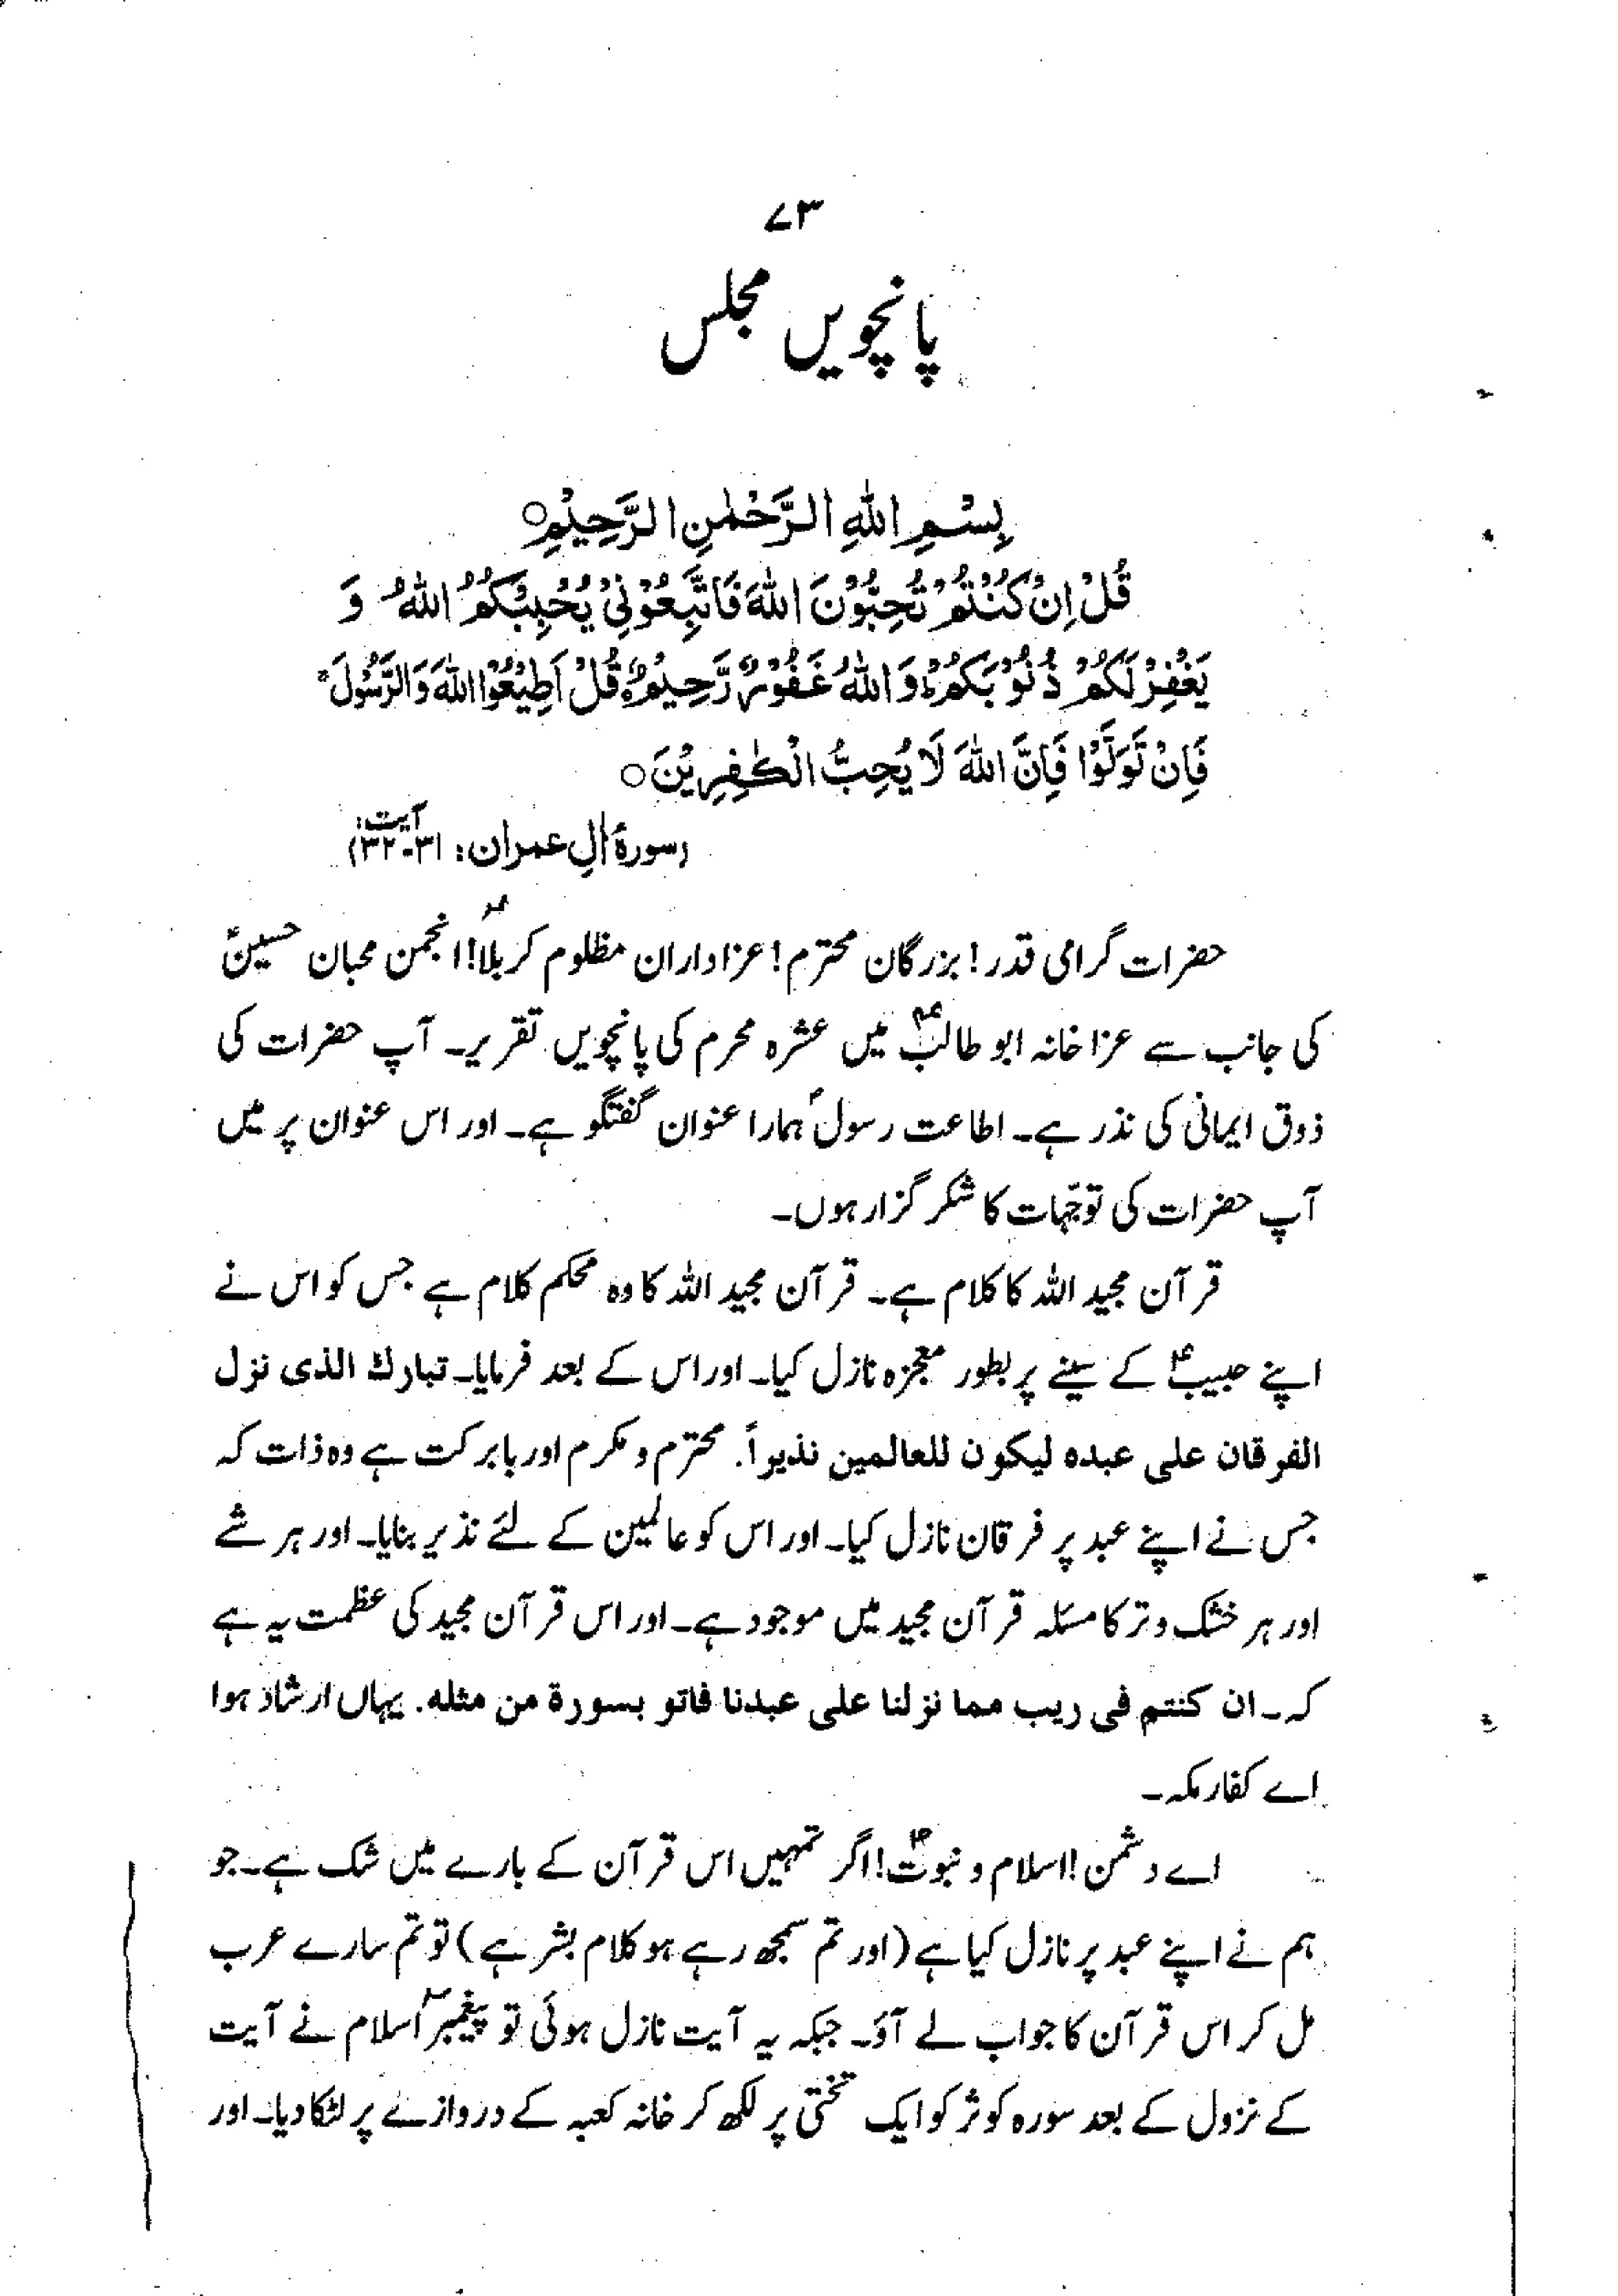 ۷۳
پانچویں مجلس
بِسْمِ اللّٰهِ الرَّحْمٰنِ الرَّحِيْمِ○
قُلْ اِنْ كُنْتُمْ تُحِبُّوْنَ اللّٰهَ فَاتَّبِعُوْنِيْ يُحْبِبْكُمُ اللّٰهُ وَ
يَغْفِرْ لَكُمْ ذُنُوْبَكُمْ ؕ وَ اللّٰهُ غَفُوْرٌ رَّحِيْمٌ○ قُلْ اَطِيْعُوا اللّٰهَ وَ الرَّسُوْلَ ۚ
فَاِنْ تَوَلَّوْا فَاِنَّ اللّٰهَ لَا يُحِبُّ الْكٰفِرِيْنَ○
(سورۂ اٰلِ عمران: آیت: ۳۱-۳۲)
حضرات گرامی قدر! بزرگان محترم! عزاداران مظلوم کربلاؑ! انجمن محبان حسینؑ
کی جانب سے عزا خانہ ابو طالبؑ میں عشرہ محرم کی پانچویں تقریر۔ آپ حضرات کی
ذوق ایمانی کی نذر ہے۔ اطاعت رسولؐ ہمارا عنوان گفتگو ہے۔ اور اس عنوان پر میں
آپ حضرات کی توجّہات کا شکر گزار ہوں۔
قرآن مجید اللہ کا کلام ہے۔ قرآن مجید اللہ کا وہ محکم کلام ہے جس کو اس نے
اپنے حبیبؐ کے سینے پر بطور معجزہ نازل کیا۔ اور اس کے بعد فرمایا۔ تبارك الذی نزل
الفرقان علی عبده لیکون للعالمین نذیراً. محترم و مکرم اور بابرکت ہے وہ ذات کہ
جس نے اپنے عبد پر فرقان نازل کیا۔ اور اس کو عالمین کے لئے نذیر بنایا۔ اور ہر شے
اور ہر خشک و تر کا مسئلہ قرآن مجید میں موجود ہے۔ اور اس قرآن مجید کی عظمت یہ ہے
کہ۔ ان کنتم فی ریب مما نزلنا علی عبدنا فاتو بسورة من مثله. یہاں ارشاد ہوا
اے کفار مکہ۔
اے دشمن! اسلام و نبوتؐ! اگر تمہیں اس قرآن کے بارے میں شک ہے۔ جو
ہم نے اپنے عبد پر نازل کیا ہے (اور تم سمجھ رہے ہو کلام بشر ہے) تو تم سارے عرب
مل کر اس قرآن کا جواب لے آؤ۔ جبکہ یہ آیت نازل ہوئی تو پیغمبرؐ اسلام نے آیت
کے نزول کے بعد سورہ کوثر کو ایک تختی پر لکھ کر خانہ کعبہ کے دروازے پر لٹکا دیا۔ اور